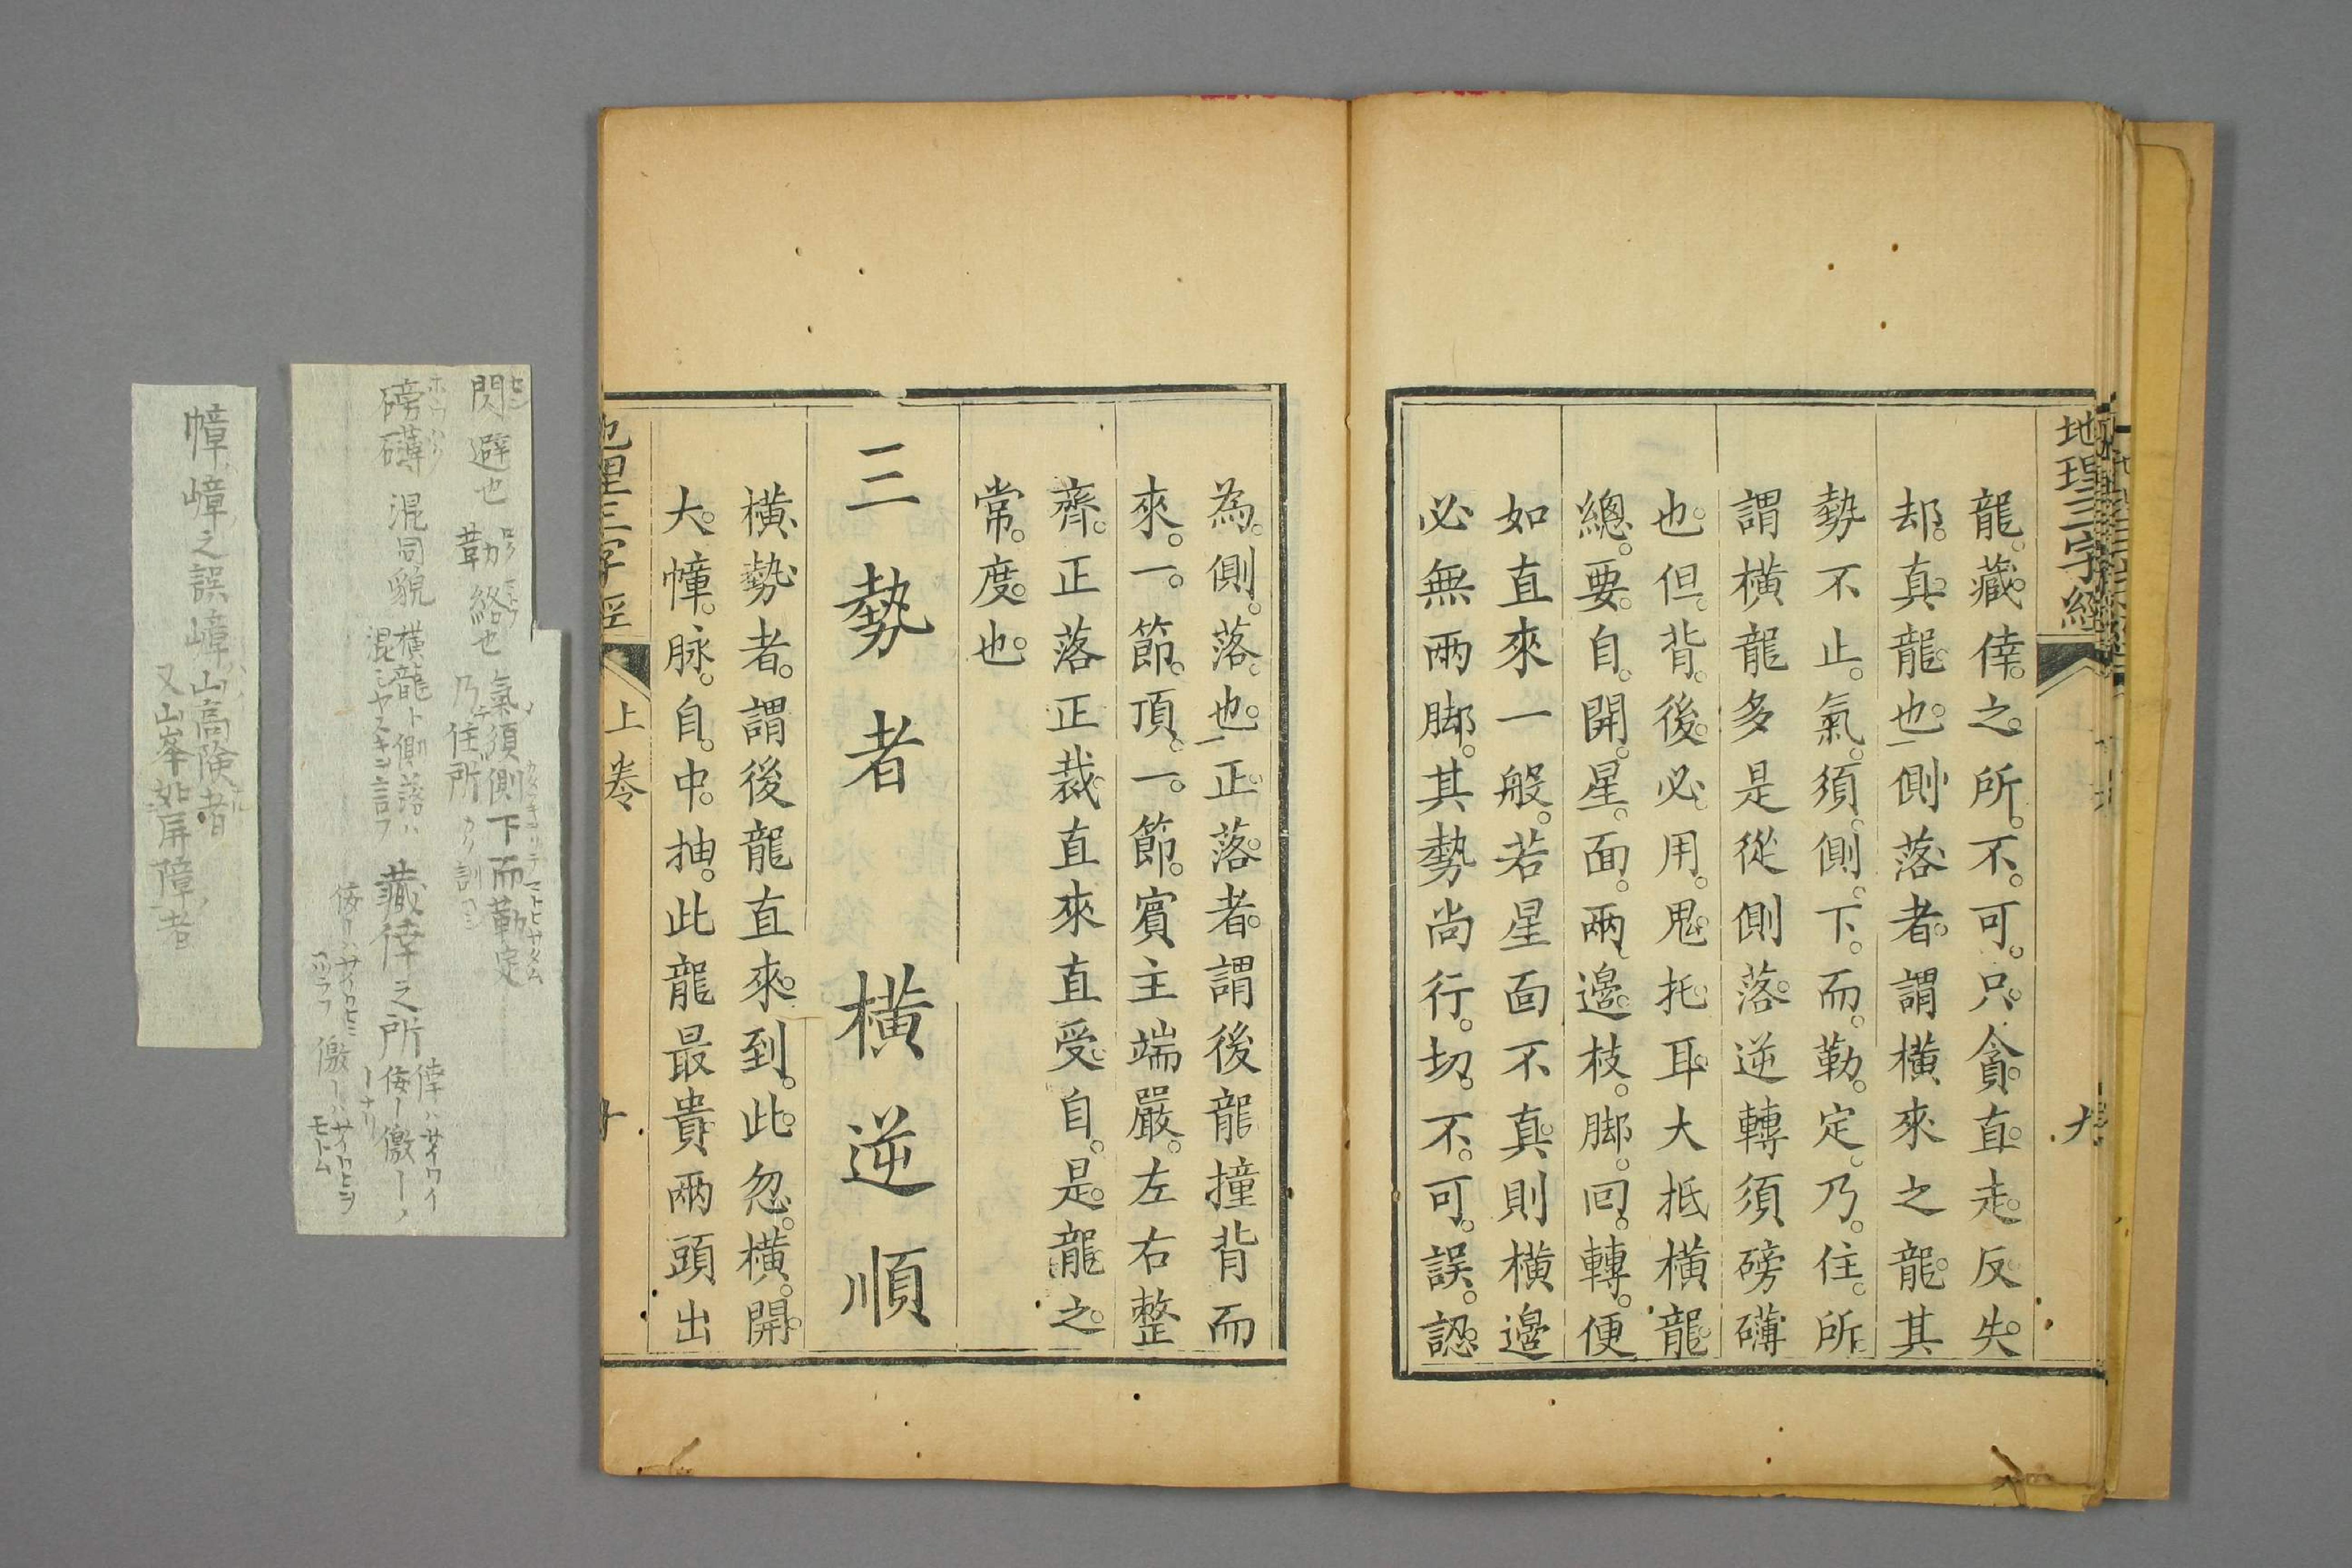 地理三字經
九
龍藏倖之所不可只貪直走反失
却真龍也一側落者謂橫來之龍其
勢不止氣須側下而勒定乃住所
謂橫龍多是從側落逆轉須磅礴
也但背後必用鬼托耳大抵橫龍
總要自開星面兩邊枝脚回轉便
如直來一般若星面不真則橫邊
必無兩脚其勢尚行切不可誤認
為側落也一正落者謂後龍撞背而
來一節頂一節賓主端嚴左右整
齊正落正裁直來直受自是龍之
常度也
三勢者橫逆順
橫勢者謂後龍直來到此忽橫開
大幛脉自中抽此龍最貴兩頭出
地理三字經
上卷
十
閃避也 勒絡也 氣須側下而勒定
乃住所
磅礴 混同貌 橫龍ト側落ハ
混シヤスキヲ言フ
藏倖之所 倖ハサイワイ
幛嶂之誤嶂山高険者
又山峯如屏障者